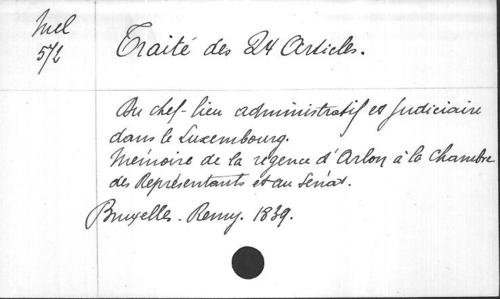 Mel
572
Traité des 24 Articles.
Du chef-lieu administratif et judiciaire
dans le Luxembourg.
Mémoire de la régence d'Arlon à la Chambre
des Représentants et au Sénat.
Bruxelles. Remy. 1839.